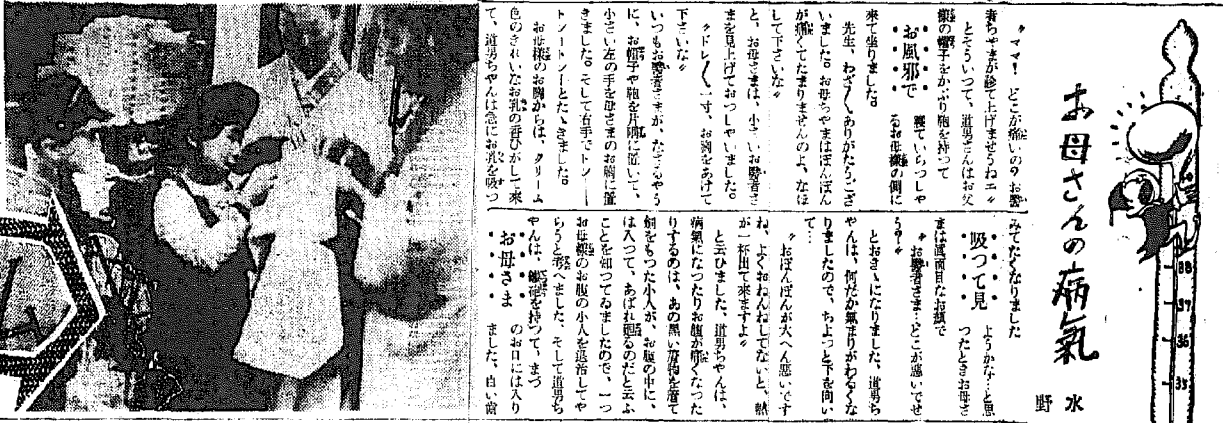 お母さんの病氣
水野
〝ママ! どこが痛いの? お醫
者ちやまが診て上げませうねエ〟
とさういつて、道男さんはお父
樣の帽子をかぶり鞄を持つて
お風邪で
寢ていらつしや
るお母樣の側に
來て坐りました。
先生、わざ〱ありがたうござ
いました。お母ちやまはぽんぽん
が痛くてたまりませんのよ、なほ
して下さいな〟
と、お母さまは、小さいお醫者さ
まを見上げておつしやいました。
〝ドレ〱一寸、お胸をあけて
下さいな〟
いつもお醫者さまが、なさるやう
に、お帽子や鞄を片隅に置いて、
小さい左の手を母さまのお胸に置
きました。そして右手でトン――
トン――トンとたゝきました。
お母樣のお胸からは、クリーム
色のきれいなお乳の香ひがして來
て、道男ちやんは急にお乳を吸つ
みてたくなりました
吸つて見
ようかな…と思
つたときお母さ
まは眞面目なお顏で
〝お醫者さま…どこが惡いでせ
う?〟
とおきゝになりました、道男ち
やんは、何だか氣まりがわるくな
りましたので、ちよつと下を向い
て…
〝おぽんぽんが大へん惡いです
ね、よくおねんねしてないと、熱
が一杯出て來ますよ〟
と云ひました、道男ちやんは、
病氣になつたりお腹が痛くなつた
りするのは、あの黑い着物を着て
劍をもつた小人が、お腹の中に、
は入つて、あばれ廻るのだと云ふ
ことを知つてゐましたので、一つ
お母樣のお腹の小人を退治してや
らうと考へました、そして道男ち
やんは、
を持つて、まづ
お母さま
のお口には入り
ました、白い齒
38
37
36
35